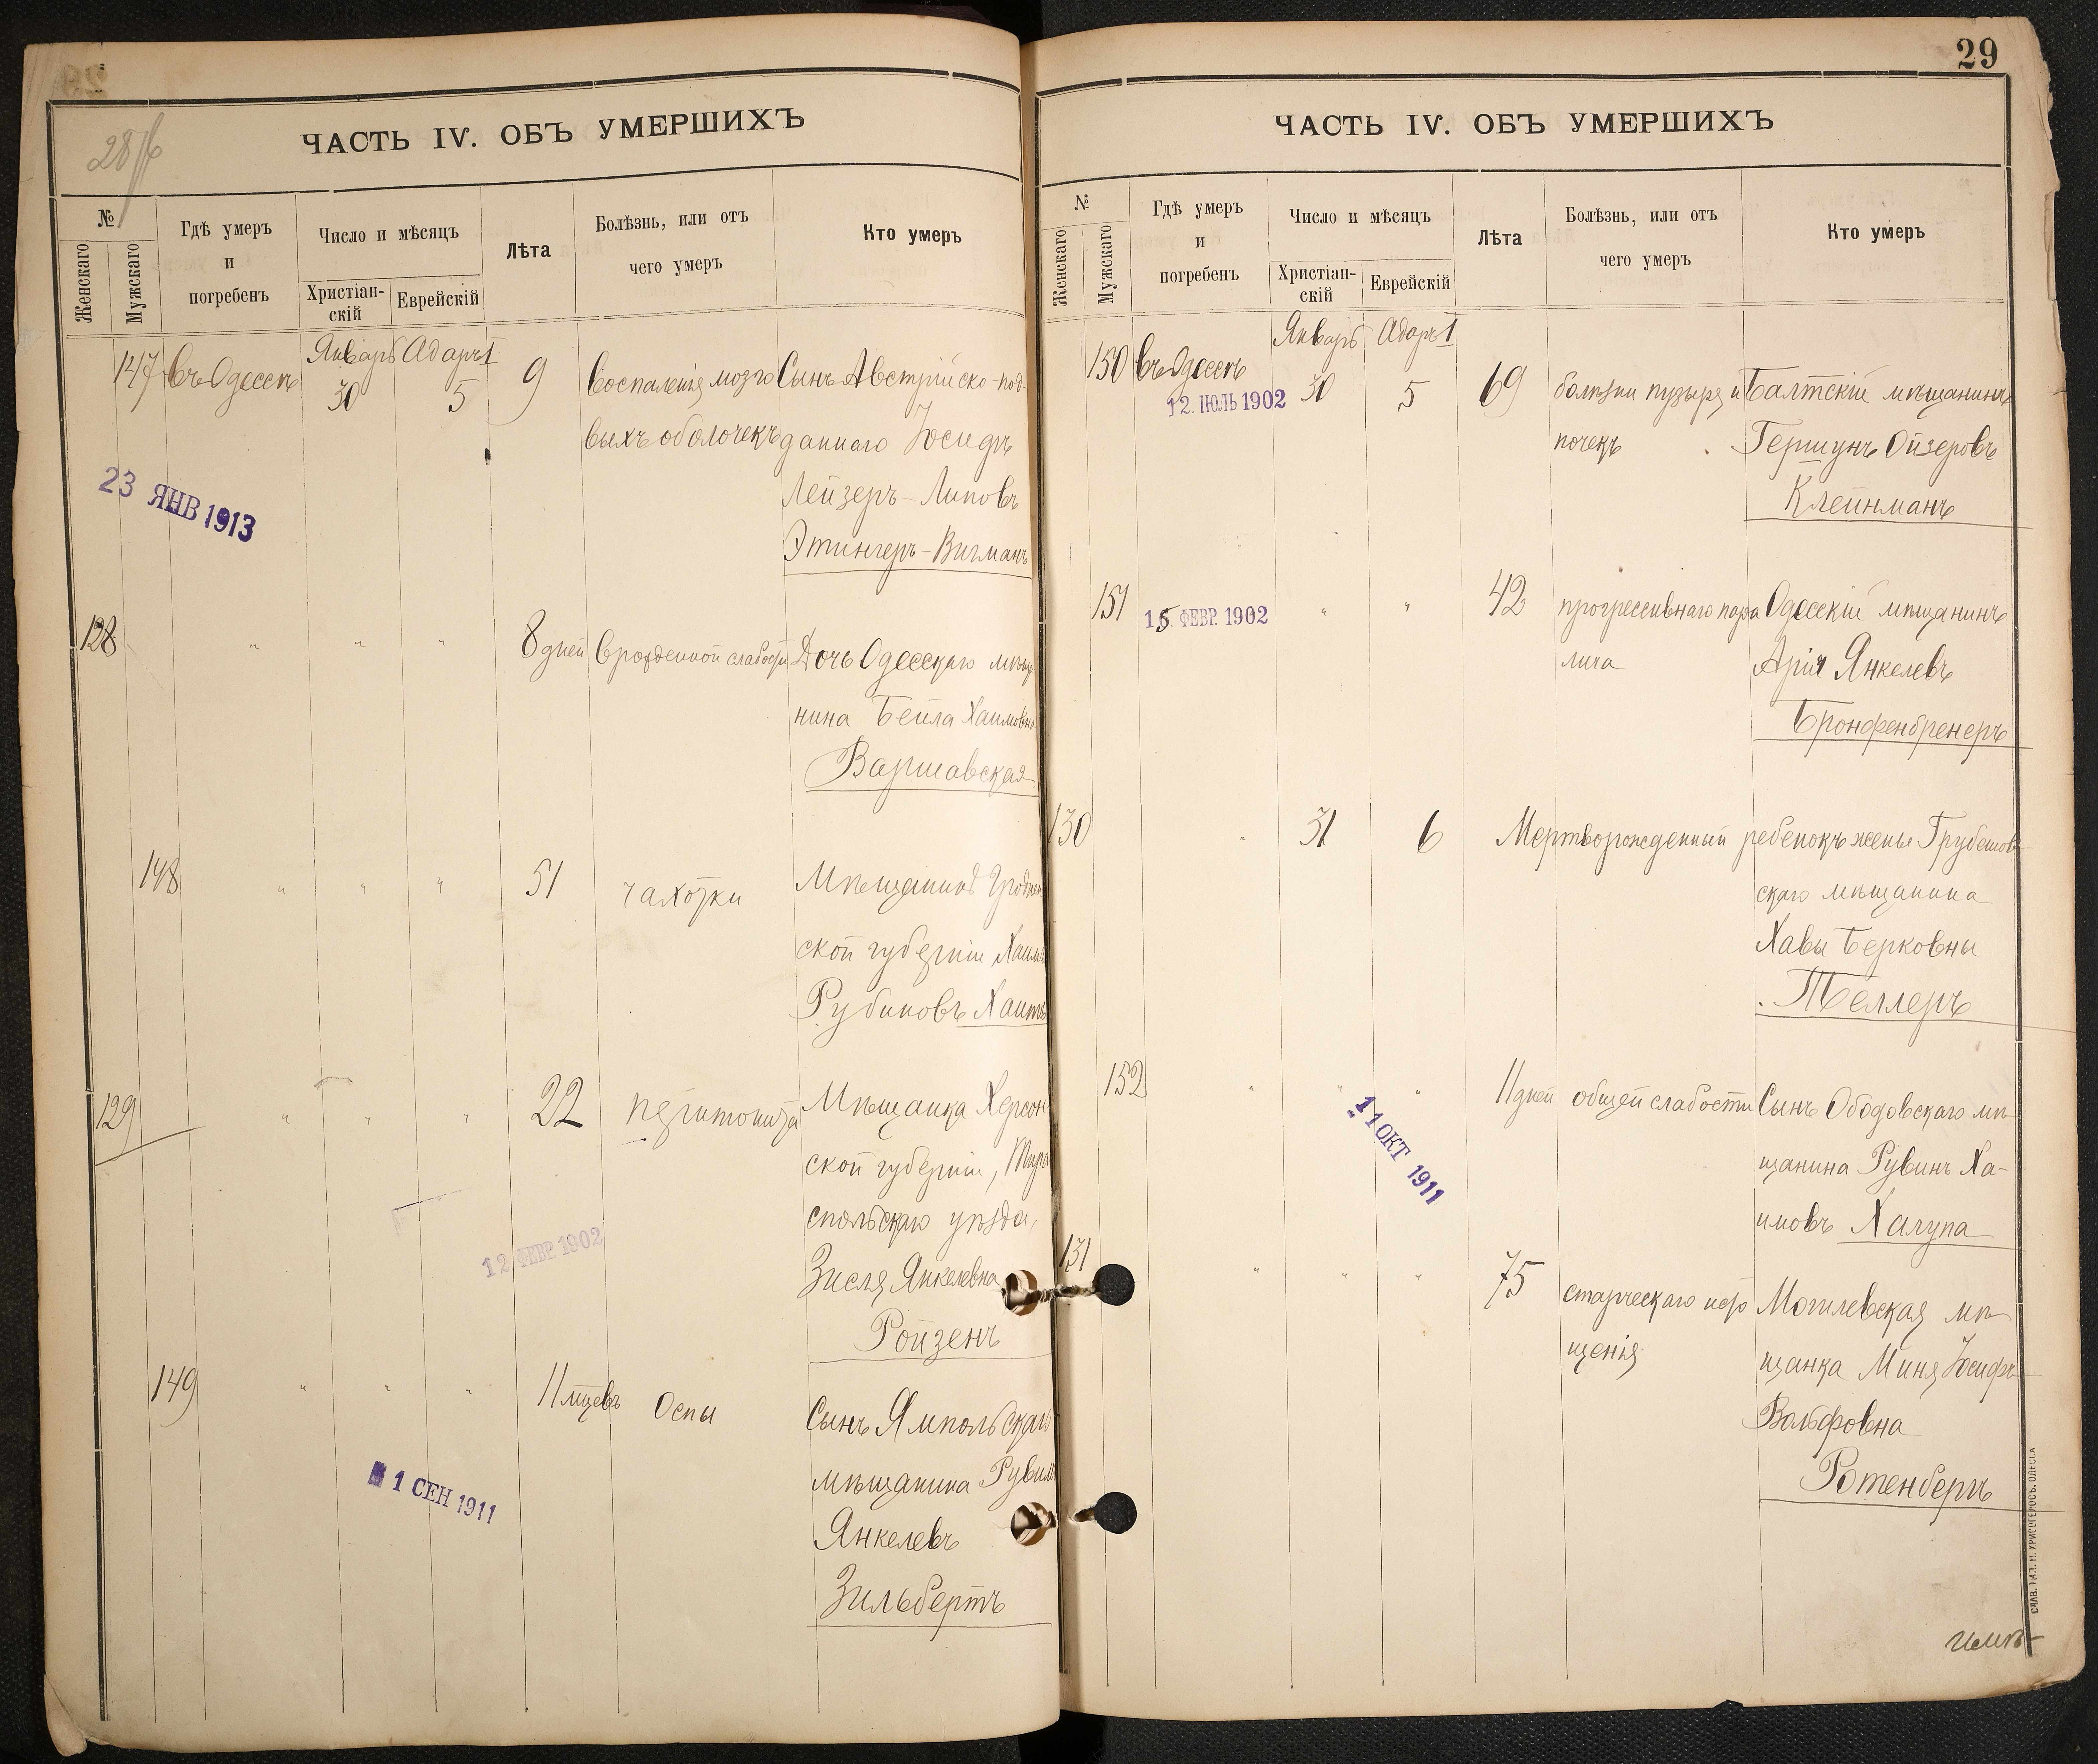 28 об
ЧАСТЬ IV. ОБЪ УМЕРШИХЪ
№
Женскаго
Мужскаго
Гдѣ умеръ
и
погребенъ
Число и мѣсяцъ
Христіан-
скій
Еврейскій
Лѣта
Болѣзнь, или отъ
чего умеръ
Кто умеръ
Январь Адаръ I
147 въ Одессѣ 30 5 9 воспаленія мозго Сынъ Австрійско-под-
выхъ оболочекъ даннаго Іосифъ
Лейзеръ-Липовъ
Этингеръ-Вигманъ
23 ЯНВ 1913
128 " " " 8 дней врожденной слабости Дочь Одесскаго мѣща
нина Бейла Хаимовна
Варшавская
148 " " " 51 чахотки Мѣщанинъ Гроднен
ской губерніи Хаимъ
Рубиновъ Хаитъ
129 " " " 22 перитонита Мѣщанка Херсон
ской губерніи, Тира
спольскаго уѣзда,
Зисля Янкелевна
Ройзенъ
12 ФЕВР 1902
149 " " " 11 мцевъ Оспы Сынъ Ямпольскаго
мѣщанина Рувим
Янкелевъ
Зильбертъ
1 СЕН 1911
29
ЧАСТЬ IV. ОБЪ УМЕРШИХЪ
№
Женскаго
Мужскаго
Гдѣ умеръ
и
погребенъ
Число и мѣсяцъ
Христіан-
скій
Еврейскій
Лѣта
Болѣзнь, или отъ
чего умеръ
Кто умеръ
Январь Адаръ I
150 въ Одессѣ 30 5 69 болѣзни пузыря и Балтскій мѣщанинъ
12. ІЮЛЬ 1902
почекъ Гершунъ Ойзеровъ
Клейнманъ
151 15 ФЕВР. 1902 " " 42 прогрессивнаго пара Одесскій мѣщанинъ
лича Арія Янкелевъ
Бронфенбренеръ
130 " 31 6 Мертворожденный ребенокъ жены Грубешов-
скаго мѣщанина
Хавы Берковны
Теллеръ
152 " " " 11 дней общей слабости Сынъ Ободовскаго мѣ-
щанина Рувинъ Ха-
имовъ Халупа
11 ОКТ 1911
131 " " " 75 старческаго исто Могилевская мѣ-
щенія щанка Миня Іосифъ-
Вольфовна
Ротенбергъ
СЛАВ. ТИП. Н. ХРИСОГЕЛОСЪ. ОДЕССА